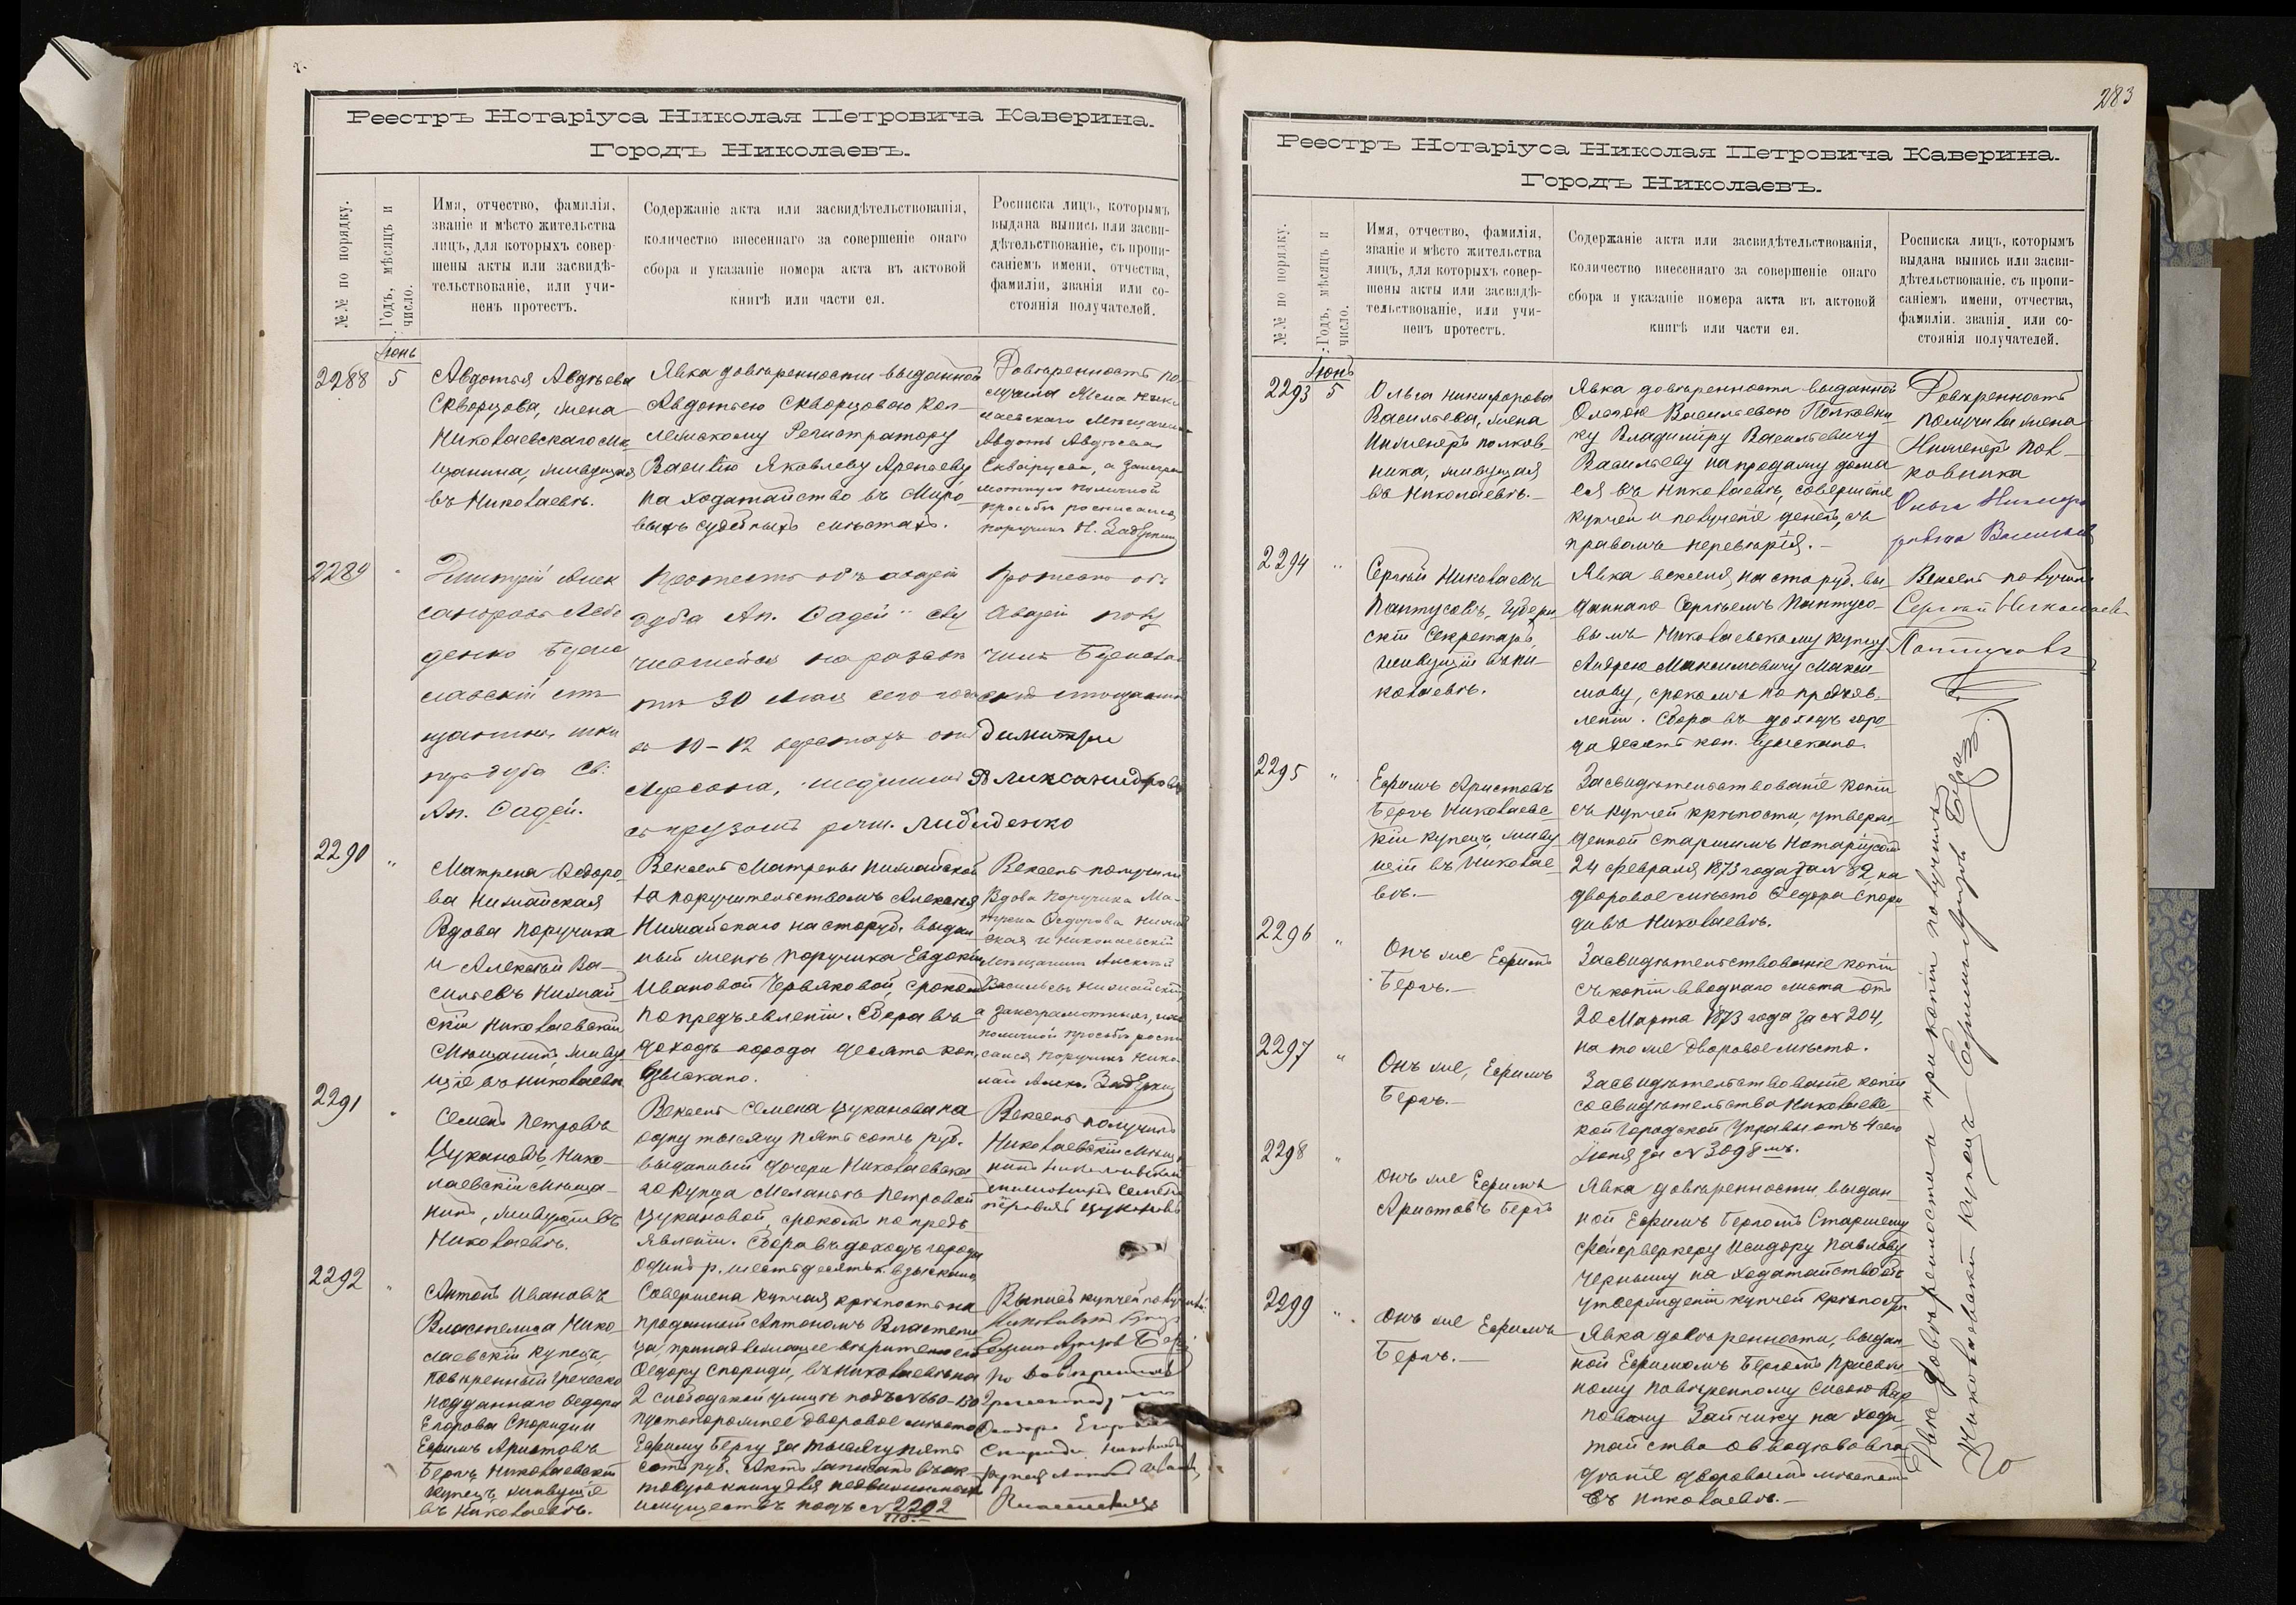 Реестръ Нотаріуса Николая Петровича Каверина.
Городъ Николаевъ.
№№ по порядку.
Годъ, мѣсяцъ и
число.
Имя, отчество, фамилія,
званіе и мѣсто жительства
лицъ, для которыхъ совер-
шены акты или засвидѣ-
тельствованіе, или учи-
ненъ протестъ.
Содержаніе акта или засвидѣтельствованія,
количество внесеннаго за совершеніе онаго
сбора и указаніе номера акта въ актовой
книгѣ или части ея.
Росписка лицъ, которымъ
выдана выпись или засви-
дѣтельствованіе, съ пропи-
саніемъ имени, отчества,
фамиліи, званія или со-
стоянія получателей.
Іюнь
2288
5
Авдотья Авдѣева
Скворцова, жена
Николаевскаго мѣ-
щанина, живущая
въ Николаевѣ.
Явка довѣренности выданной
Авдотьею Скворцовою Кол-
лежскому Регистратору
Василію Яковлеву Арепьеву
на ходатайство въ Миро-
выхъ судебныхъ мѣстахъ.
Довѣренность по-
лучила жена Нико
лаевскаго Мѣщанина
Авдотья Авдѣева
Скворцова, а за неграмотную по личной
просьбѣ росписался
поручикъ Н.
2289
Дмитрій Алек
сандровъ Лебе
денко
мѣ
щанинъ, шки
перъ дуба Св:
Ап. Фадей.
Протестъ объ аваріи
дуба Ап. Фадей слу
чившейся на разсвѣ
тѣ 30 Мая сего года
въ 10-12 верстахъ отъ
Херсона, шедшимъ
съ грузомъ
Протестъ объ
Аваріи полу
чилъ
Димитри
Александровъ
Либиденко
2290
"
Матрена Федоро-
ва Нижайская
Вдова Поручика
и Алексѣй Ва-
сильевъ Нижай-
скій Николаевскій
Мѣщанинъ живу-
щіе въ Николаевѣ
Вексель Матрены Нижайской
за поручительствомъ Алексѣя
Нижайскаго на сто руб. выдан
ный женѣ поручика Евдокіи
Ивановой Червяковой, срокомъ
по предъявленіи. Сбора въ
доходъ города десять коп.
взыскано.
Вексель получили
Вдова Поручика Ма-
трена Федорова Нижай
ская и Николаевскій
Мѣщанинъ Алексѣй
Васильевъ Нижайскій,
а за неграмотныхъ, по ихъ
личной просьбѣ роспи
сался Поручикъ Нико-
лай Алекс.
2291
"
Семенъ Петровъ
Цукановъ, Нико-
лаевскій Мѣща-
нинъ, живущій въ
Николаевѣ.
Вексель Семена Цуканова на
одну тысячу пятьсотъ руб.
выданный дочери Николаевска
го купца Меланьѣ Петровой
Цукановой, срокомъ по предъ
явленіи. Сбора въ доходъ города
одинъ р. шестьдесятъ к. взыскано
Вексель получилъ
Николаевскій Мѣща
нинъ
Семенъ
Петровъ Цукановъ
2292
"
Антонъ Ивановъ
Властелица Нико-
лаевскій купецъ,
повѣренный Греческо
подданнаго Федора
Егорова Спориди и
Ефимъ Аристовъ
Бергъ Николаевскій
купецъ, живущіе
въ Николаевѣ.
Совершена купчая крѣпость на
проданный Антономъ Властели
ца, принадлежащее вѣрителю его
Федору Спориди, въ Николаевѣ на
2 слободской улицѣ подъ № 660-150
пустопорожнее дворовое мѣсто
Ефиму Бергу за тысячу пять
сотъ руб. Актъ записанъ въ ак-
товую книгу для недвижимыхъ
имуществъ подъ № 2292
Выпись купчей получилъ
Николаевскій Купецъ
Ефимъ Аристовъ Бергъ
По довѣренности
Греческоподданнаго
Феодора Егорова
Спориди Николаевскій
купецъ Антонъ Ивановъ
Властелица
283
Реестръ Нотаріуса Николая Петровича Каверина.
Городъ Николаевъ.
№№ по порядку.
Годъ, мѣсяцъ и
число.
Имя, отчество, фамилія,
званіе и мѣсто жительства
лицъ, для которыхъ совер-
шены акты или засвидѣ-
тельствованіе, или учи-
ненъ протестъ.
Содержаніе акта или засвидѣтельствованія,
количество внесеннаго за совершеніе онаго
сбора и указаніе номера акта въ актовой
книгѣ или части ея.
Росписка лицъ, которымъ
выдана выпись или засви-
дѣтельствованіе, съ пропи-
саніемъ имени, отчества,
фамиліи. званія или со-
стоянія получателей.
Іюнь
2293
5
Ольга Никифорова
Васильева, жена
Инженеръ полков-
ника, живущая
въ Николаевѣ.
Явка довѣренности выданной
Ольгою Васильевою Полковни
ку Владиміру Васильевичу
Васильеву на продажу дома
ея въ Николаевѣ, совершеніе
купчей и полученіе денегъ, съ
правомъ передовѣрія.
Довѣренность
получила жена
Инженеръ Пол-
ковника
Ольга Никифо
ровна Васильева
2294
"
Сергѣй Николаевъ
Паптусовъ, Губерн
скій Секретарь,
живущій въ Ни-
колаевѣ.
Явка векселя, на сто руб. вы-
даннаго Сергѣемъ Паптусо-
вымъ Николаевскому купцу
Андрею Максимовичу Макси-
мову, срокомъ по предъяв-
леніи. Сбора въ доходъ горо-
да десять коп. взыскано.
Вексель получилъ
Сергѣй Николаевъ
Паптусовъ
2295
"
Ефимъ Аристовъ
Бергъ Николаевс
кій купецъ, живу
щій въ Николае-
вѣ.
Засвидѣтельствованіе копіи
съ купчей крѣпости, утверж
денной Старшимъ Нотаріусомъ
24 Февраля 1873 года за № 82 на
дворовое мѣсто Федора Спори
ди въ Николаевѣ.
2296
"
Онъ же Ефимъ
Бергъ.
Засвидѣтельствованіе копіи
съ копіи вводнаго листа отъ
20 Марта 1873 года за № 204,
на то же дворовое мѣсто.
2297
"
Онъ же, Ефимъ
Бергъ.
Засвидѣтельствованіе копіи
со свидѣтельства Николаевс-
кой Городской Управы отъ 4 сего
Іюня за № 3098мъ.
2298
"
Онъ же Ефимъ
Аристовъ Бергъ
Явка довѣренности, выдан-
ной Ефимъ Бергомъ Старшему
Фейерверкеру Исидору Павлову
Черныму на ходатайство объ
утвержденіи купчей крѣпости
2299
"
Онъ же Ефимъ
Бергъ.
Явка довѣренности, выдан
ной Ефимомъ Бергомъ Присяж
ному повѣренному
Зайчику на хода
тайство о вводѣ во вла
дѣніе дворовымъ мѣстомъ
въ Николаевѣ.
Двѣ довѣренности и три копіи получилъ
Николаевскій купецъ Ефимъ Аристовъ Бергъ